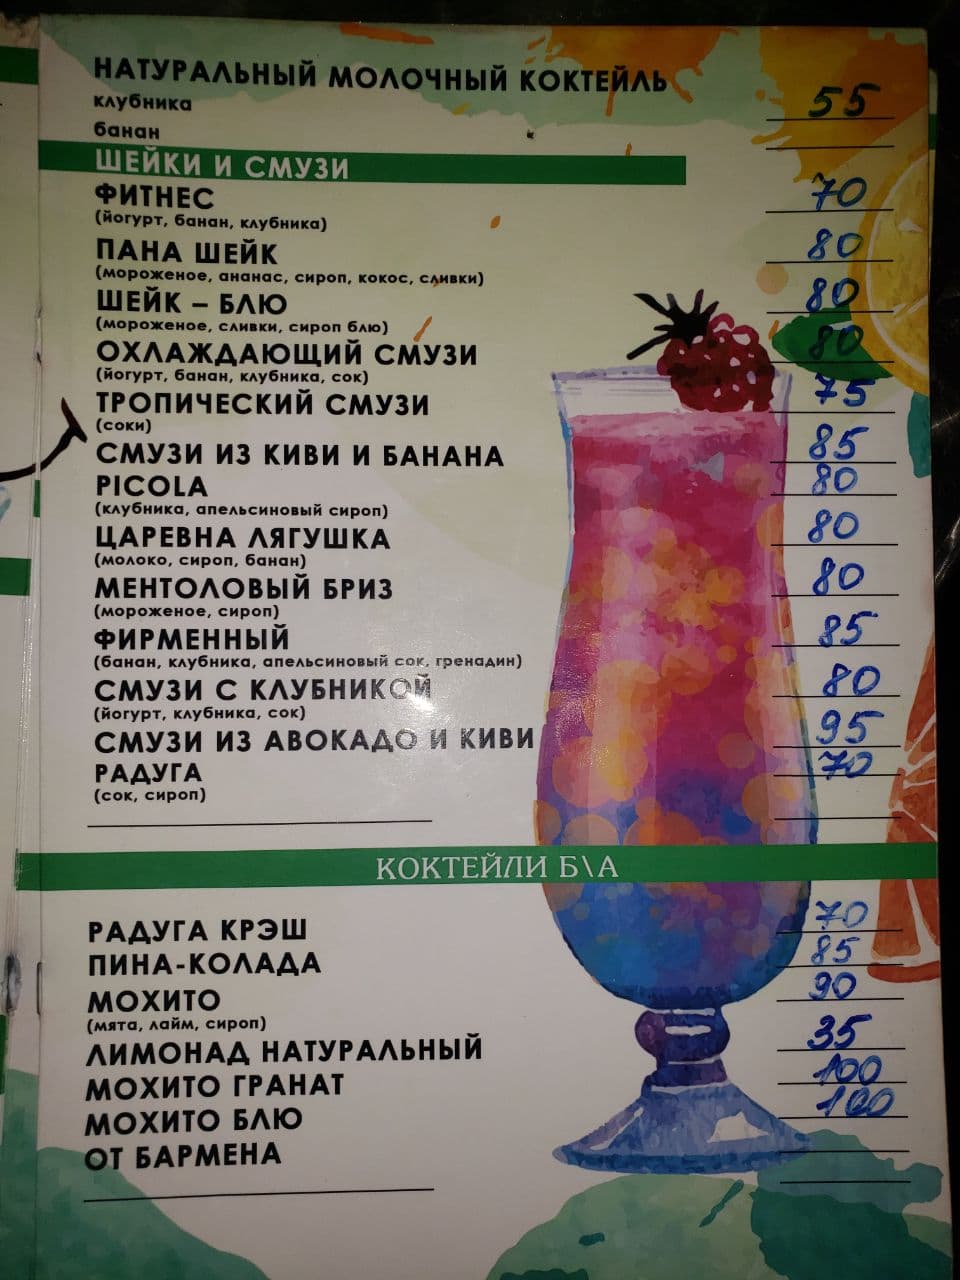 НАТУРАЛЬНЫЙ МОЛОЧНЫЙ КОКТЕЙЛЬ
клубника 55
банан
ШЕЙКИ И СМУЗИ
ФИТНЕС 70
(йогурт, банан, клубника)
ПАНА ШЕЙК 80
(мороженое, ананас, сироп, кокос, сливки)
ШЕЙК – БЛЮ 80
(мороженое, сливки, сироп блю)
ОХЛАЖДАЮЩИЙ СМУЗИ 80
(йогурт, банан, клубника, сок)
ТРОПИЧЕСКИЙ СМУЗИ 75
(соки)
СМУЗИ ИЗ КИВИ И БАНАНА 85
PICOLA 80
(клубника, апельсиновый сироп)
ЦАРЕВНА ЛЯГУШКА 80
(молоко, сироп, банан)
МЕНТОЛОВЫЙ БРИЗ 80
(мороженое, сироп)
ФИРМЕННЫЙ 85
(банан, клубника, апельсиновый сок, гренадин)
СМУЗИ С КЛУБНИКОЙ 80
(йогурт, клубника, сок)
СМУЗИ ИЗ АВОКАДО И КИВИ 95
РАДУГА 70
(сок, сироп)
КОКТЕЙЛИ Б\А
РАДУГА КРЭШ 70
ПИНА-КОЛАДА 85
МОХИТО 90
(мята, лайм, сироп)
ЛИМОНАД НАТУРАЛЬНЫЙ 35
МОХИТО ГРАНАТ 100
МОХИТО БЛЮ 100
ОТ БАРМЕНА